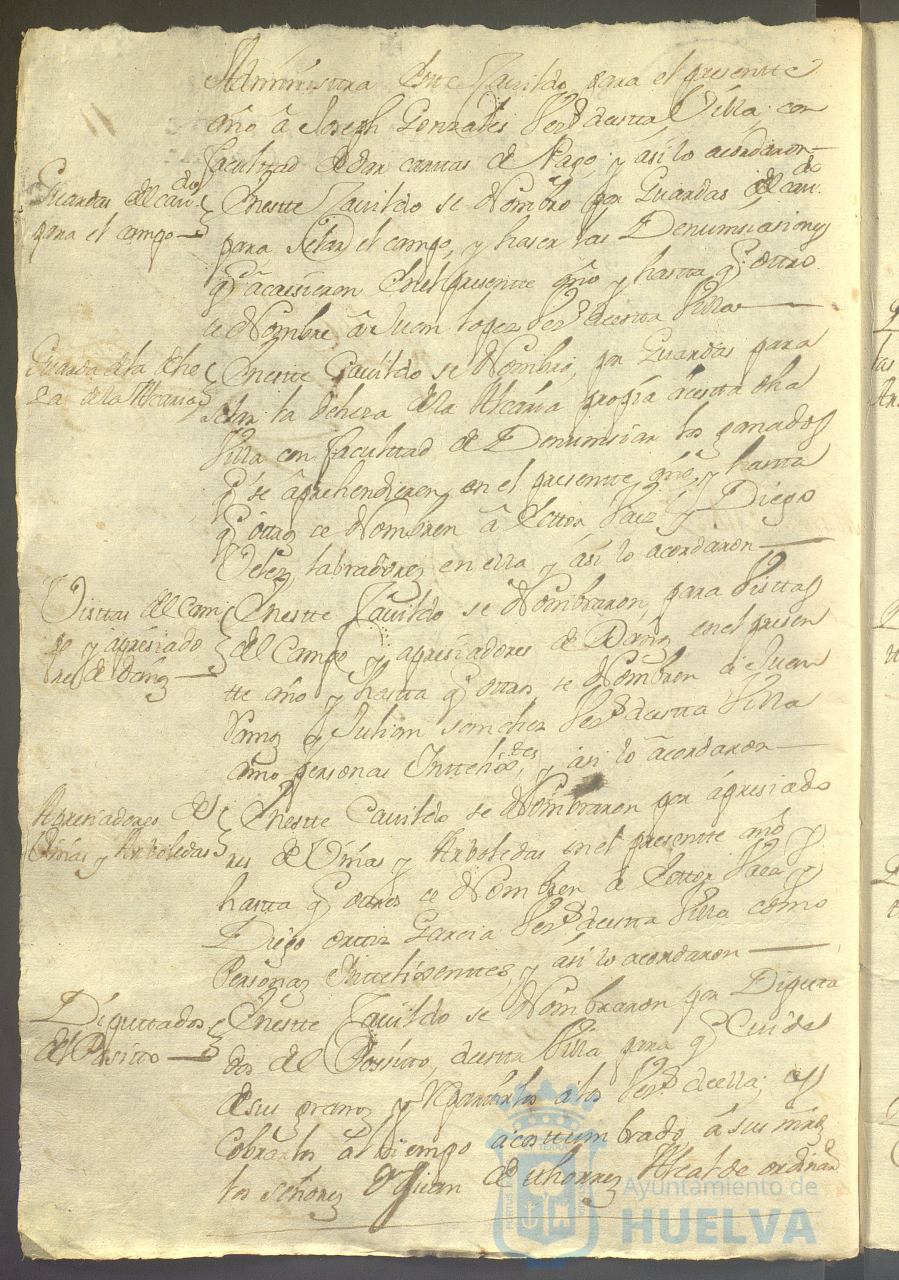 Administra este Cavildo para el presentte
año â Joseph Gonzales Vez.º de estta Villa, con
facultad de dar carttas de Pago, y así lo acordaron
Guardas del cau.do
para el campo
Enestte Cavildo se Nombro por Guardas del cau.do
para Selar el campo, y haser las Denunsiasiones
q.e acaisieren en el presentte año y hastta q.e ottro
se Nombre â Juan Lopez Vez.º de estta Villa
Guarda de la dehe
za de la Alcaria
Enestte Cavildo se Nombro, por Guardas para
selar la deheza de la Alcaria propia de estta dha
Villa con faculttad de Denunsiar los ganados
q.e se âprehendieren en el presentte año, y hastta
q.e ottros se Nombren â Xttov Saez y Diego
labradores en ella y así lo acordaron
Visttas del cam
po y apresiado
res de daños
Enestte Cavildo se Nombraron, para Visttas
del Campo y apresiadores de Daños en el presen
tte año y hastta q.e ottros se Nombren â Juan
Ramos y Julian Sanchez Vez.s de estta Villa
como personas Inttelix.tes, y así lo âcordaron
Apresiadores de
Viñas y Arboledas
Enestte Cavildo se Nombraron por âpresiado
res de Viñas y Arboledas en el presentte año y
hastta q.e ottros se Nombren â Xttov Saez y
Diego orttiz Garcia Vez.s de estta Villa como
Personas Inttelixenttes, y âsí lo acordaron
Diputtados
del Posítto
Enestte Cavildo se Nombraron por Diputta
dos del Possitto, de estta Villa para q.e Cuiden
de sus granos y Repartirlos â los Vez.s de ella, y
Cobrarlos âl tiempo acosttumbrado, â sus mrds
los señores Juan de thorres Alcalde ordinario
Ayuntamiento de
HUELVA